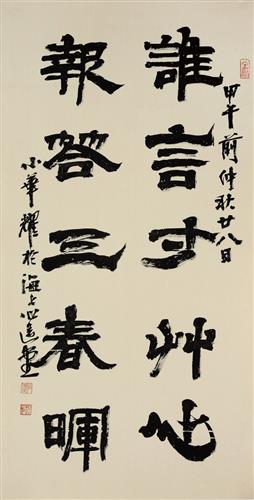 甲午前仲秋廿八日
誰言寸艸心
報答三春暉
小華耀於海上